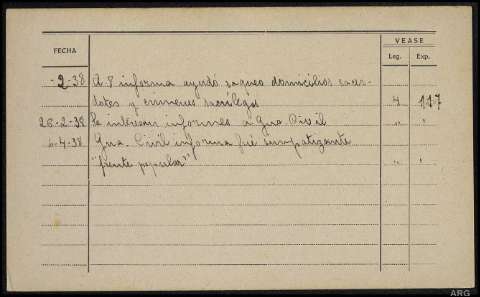 FECHA
VEASE
Leg. Exp.
-2-38 A P informa ayudó saqueo domicilios
y crimenes sacrilegos 4 117
26-2-38 Se informes a Gua Civil " "
6-4-38 Gua. Civil informa fué simpatizante
"frente popular" " "
ARG